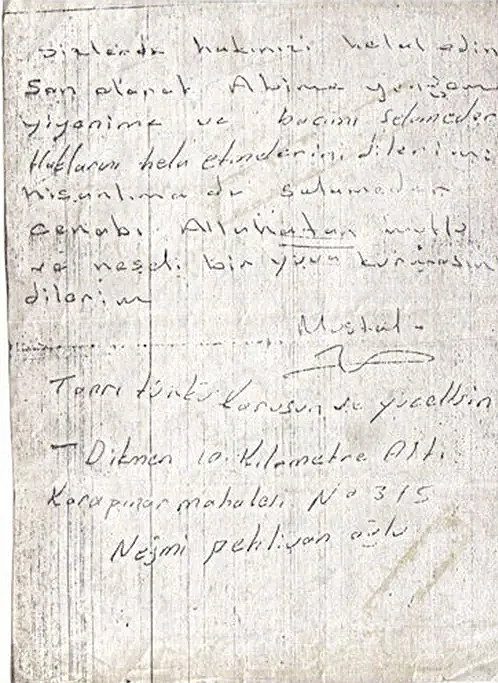 sizlerde hakınızi helal edin
Son olarak Abime yengeme
yiyenime ve bacımi selameder
Haklarını helal etmelerini dilerim
nisanlıma da selameder
cenabı Allahtan mutlu
ve neseli bir yuva kurmasın
dilerim
Mustafa
Tanrı türkü Korusun ve yüceltsin
- Dikmen 10. Kilometre Altı
Karapınar mahalesi No 315
Neğmi pehlivan oğlu